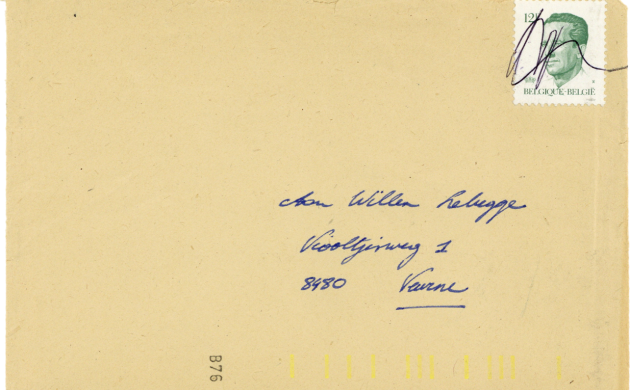 12F
BELGIQUE-BELGIË
Aan Willem Lebegge
Viooltjesweg 1
8480 Veurne
B76